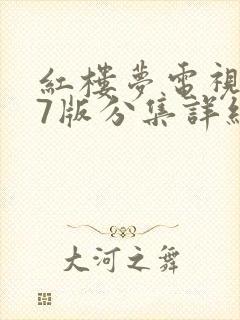 紅樓夢電視
7版分集詳
大河之舞